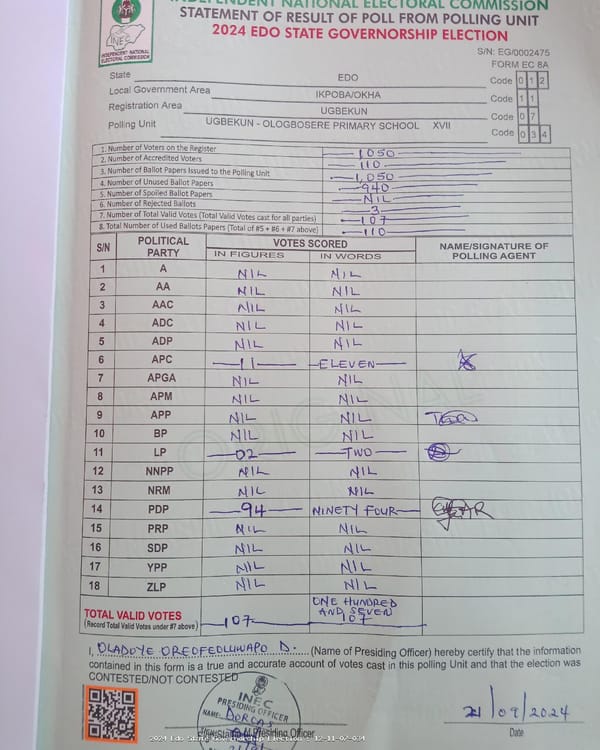 INDEPENDENT NATIONAL ELECTORAL COMMISSION
STATEMENT OF RESULT OF POLL FROM POLLING UNIT
2024 EDO STATE GOVERNORSHIP ELECTION
INEC
INDEPENDENT NATIONAL
ELECTORAL COMMISSION
S/N: EG/0002475
FORM EC 8A
State EDO Code 0 1 2
Local Government Area IKPOBA/OKHA Code 1 1
Registration Area UGBEKUN Code 0 7
Polling Unit UGBEKUN - OLOGBOSERE PRIMARY SCHOOL XVII Code 0 3 4
1. Number of Voters on the Register 1050
2. Number of Accredited Voters 110
3. Number of Ballot Papers Issued to the Polling Unit 1,050
4. Number of Unused Ballot Papers 940
5. Number of Spoiled Ballot Papers NIL
6. Number of Rejected Ballots 3
7. Number of Total Valid Votes (Total Valid Votes cast for all parties) 107
8. Total Number of Used Ballots Papers (Total of #5 + #6 + #7 above) 110
S/N POLITICAL PARTY VOTES SCORED NAME/SIGNATURE OF POLLING AGENT
IN FIGURES IN WORDS
1 A NIL NIL
2 AA NIL NIL
3 AAC NIL NIL
4 ADC NIL NIL
5 ADP NIL NIL
6 APC 11 ELEVEN
7 APGA NIL NIL
8 APM NIL NIL
9 APP NIL NIL
10 BP NIL NIL
11 LP 02 TWO
12 NNPP NIL NIL
13 NRM NIL NIL
14 PDP 94 NINETY FOUR
15 PRP NIL NIL
16 SDP NIL NIL
17 YPP NIL NIL
18 ZLP NIL NIL
ORIGINAL
TOTAL VALID VOTES ONE HUNDRED AND SEVEN
(Record Total Valid Votes under #7 above) 107 107
I, OLADOYE OREOFEOLUWAPO D. (Name of Presiding Officer) hereby certify that the information
contained in this form is a true and accurate account of votes cast in this polling Unit and that the election was
CONTESTED/NOT CONTESTED
INEC
PRESIDING OFFICER
NAME: DORCAS
21/09/2024
Presiding Officer
Date
2024 Edo State Governorship Election - 12-11-07-034